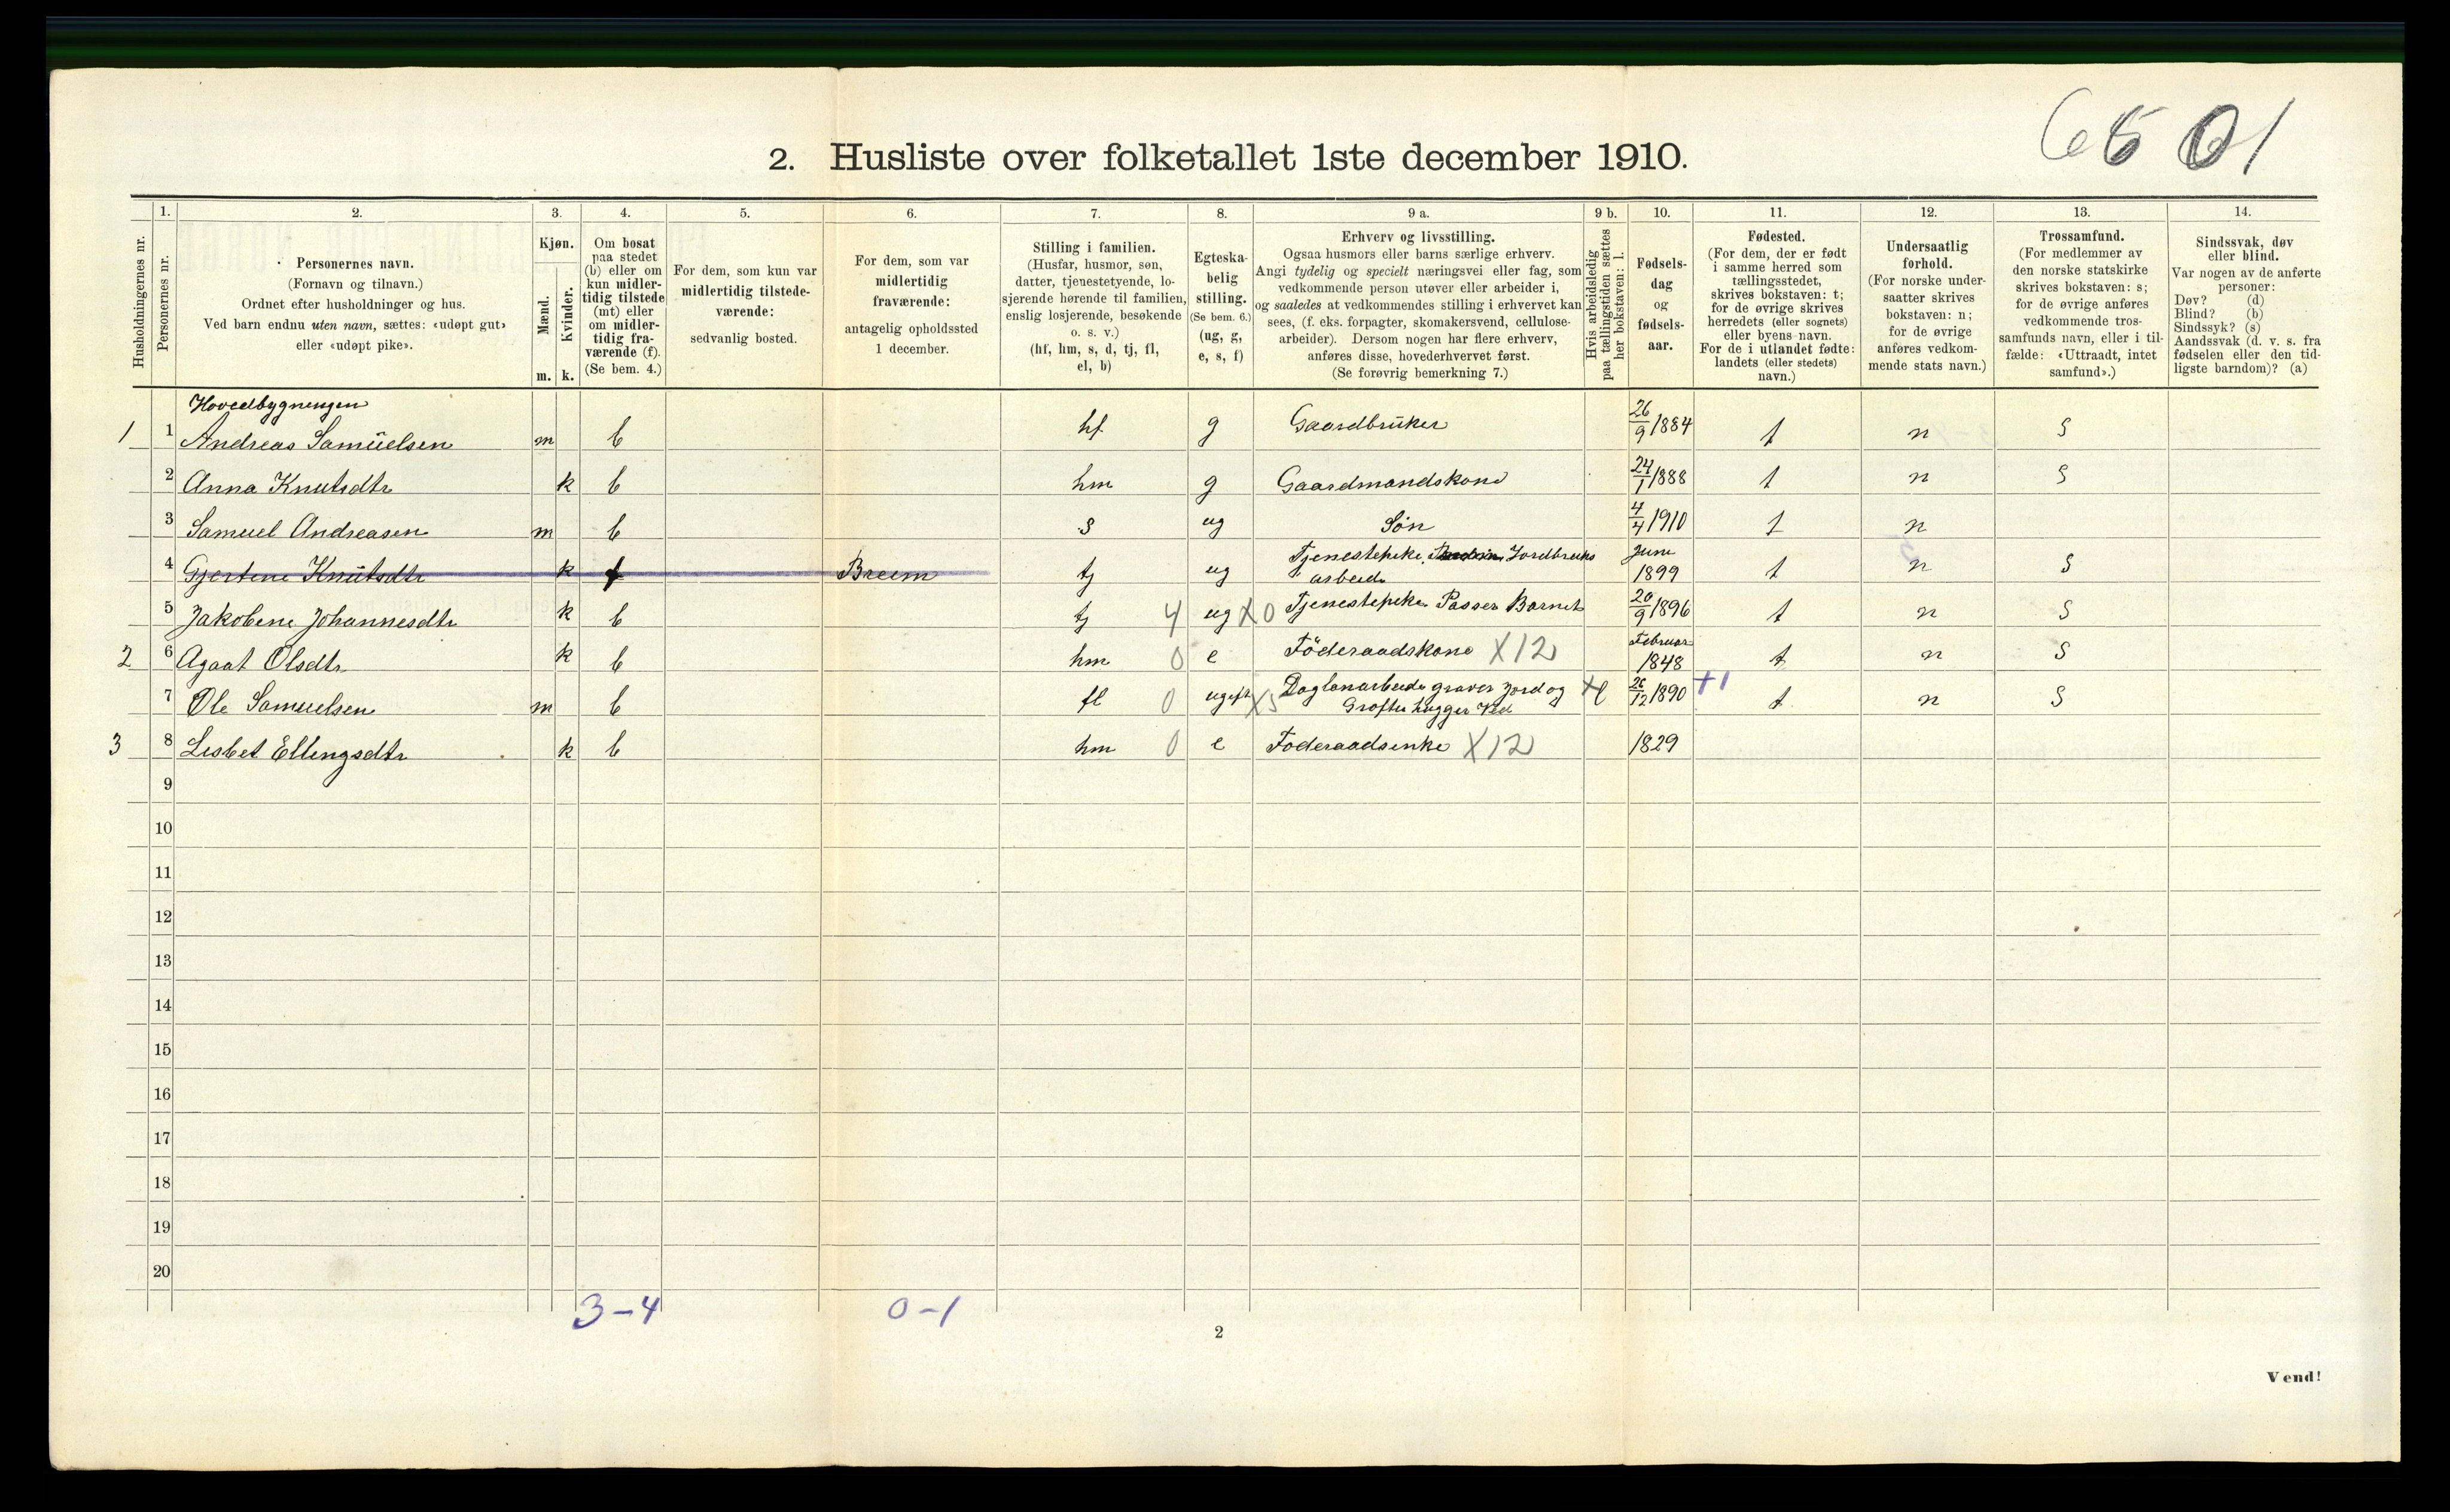 6501
2. Husliste over folketallet 1ste december 1910.
1. 2. 3. 4. 5. 6. 7. 8. 9 a. 9 b. 10. 11. 12. 13. 14.
Husholdningernes nr.
Personernes nr.
Personernes navn.
(Fornavn og tilnavn.)
Ordnet efter husholdninger og hus.
Ved barn endnu uten navn, sættes: «udøpt gut»
eller «udøpt pike».
Kjøn.
Mænd.
Kvinder.
m. k.
Om bosat
paa stedet
(b) eller om
kun midler-
tidig tilstede
(mt) eller
om midler-
tidig fra-
værende (f).
(Se bem. 4.)
For dem, som kun var
midlertidig tilstede-
værende:
sedvanlig bosted.
For dem, som var
midlertidig
fraværende:
antagelig opholdssted
1 december.
Stilling i familien.
(Husfar, husmor, søn,
datter, tjenestetyende, lo-
sjerende hørende til familien,
enslig losjerende, besøkende
o. s. v.)
(hf, hm, s, d, tj, fl,
el, b)
Egteska-
belig
stilling.
(Se bem. 6.)
(ug, g,
e, s, f)
Erhverv og livsstilling.
Ogsaa husmors eller barns særlige erhverv.
Angi tydelig og specielt næringsvei eller fag, som
vedkommende person utøver eller arbeider i,
og saaledes at vedkommendes stilling i erhvervet kan
sees, (f. eks. forpagter, skomakersvend, cellulose-
arbeider). Dersom nogen har flere erhverv,
anføres disse, hovederhvervet først.
(Se forøvrig bemerkning 7.)
Hvis arbeidsledig
paa tællingstiden sættes
her bokstaven: l.
Fødsels-
dag
og
fødsels-
aar.
Fødested.
(For dem, der er født
i samme herred som
tællingsstedet,
skrives bokstaven: t;
for de øvrige skrives
herredets (eller sognets)
eller byens navn.
For de i utlandet fødte:
landets (eller stedets)
navn.)
Undersaatlig
forhold.
(For norske under-
saatter skrives
bokstaven: n;
for de øvrige
anføres vedkom-
mende stats navn.)
Trossamfund.
(For medlemmer av
den norske statskirke
skrives bokstaven: s;
for de øvrige anføres
vedkommende tros-
samfunds navn, eller i til-
fælde: «Uttraadt, intet
samfund».)
Sindssvak, døv
eller blind.
Var nogen av de anførte
personer:
Døv? (d)
Blind? (b)
Sindssyk? (s)
Aandssvak (d. v. s. fra
fødselen eller den tid-
ligste barndom)? (a)
Hovedbygningen
1 1 Andreas Samuelsen m b hf g Gaardbruker 26/9 1884 t n S
2 Anna Knutsdtr k b hm g Gaardmandskone 24/1 1888 t n S
3 Samuel Andreasen m b s ug Søn 4/4 1910 t n
4 Gjertine Knutsdtr k f Breim tj ug Tjenestepike Jordbruks
arbeide Juni 1899 t n S
5 Jakobine Johannesdtr k b tj 4 ug X0 Tjenestepike Passer Barnet 20/9 1896 t n S
2 6 Agaat Olsdtr k b hm 0 e Föderaadskone X12 Februar 1848 t n S
7 Ole Samuelsen m b fl 0 ugift X5 Daglønarbeide graver Jord og
Grøfter hugger Ved l 26/12 1890 +1 t n S
3 8 Lisbet Ellingsdtr k b hm 0 e Foderaadsenke X12 1829
9
10
11
12
13
14
15
16
17
18
19
20
3-4 0-1
2
Vend!